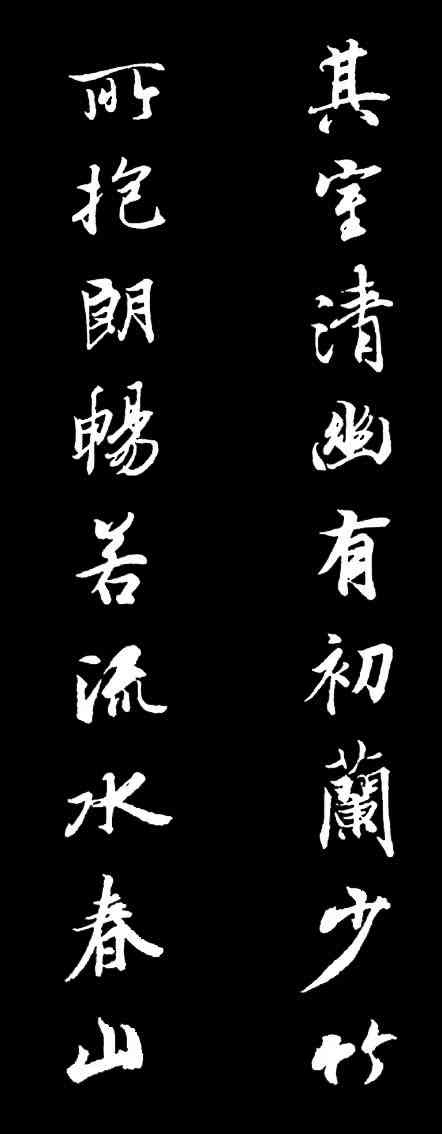 其室清幽有初蘭少竹
所抱朗暢若流水春山